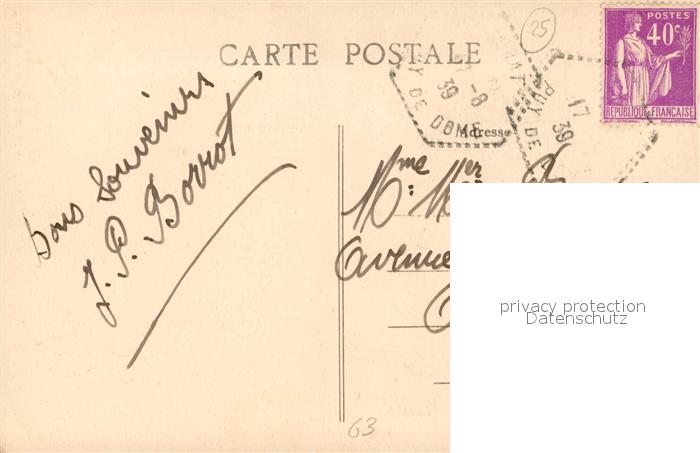 25
POSTES
40c
REPUBLIQUE FRANÇAISE
CARTE POSTALE
PUY DE DOME
17-8
39
PUY DE
17
39
Adresse
Bons Souvenirs
J. P. Borrot
Mme
Avenue
63
privacy protection
Datenschutz